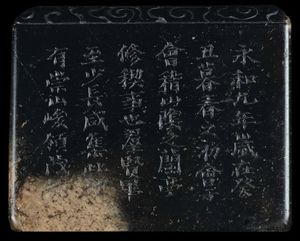 永和九年歲在癸
丑暮春之初會于
會稽山陰之蘭亭
修稧事也羣賢畢
至少長咸集此地
有崇山峻領茂